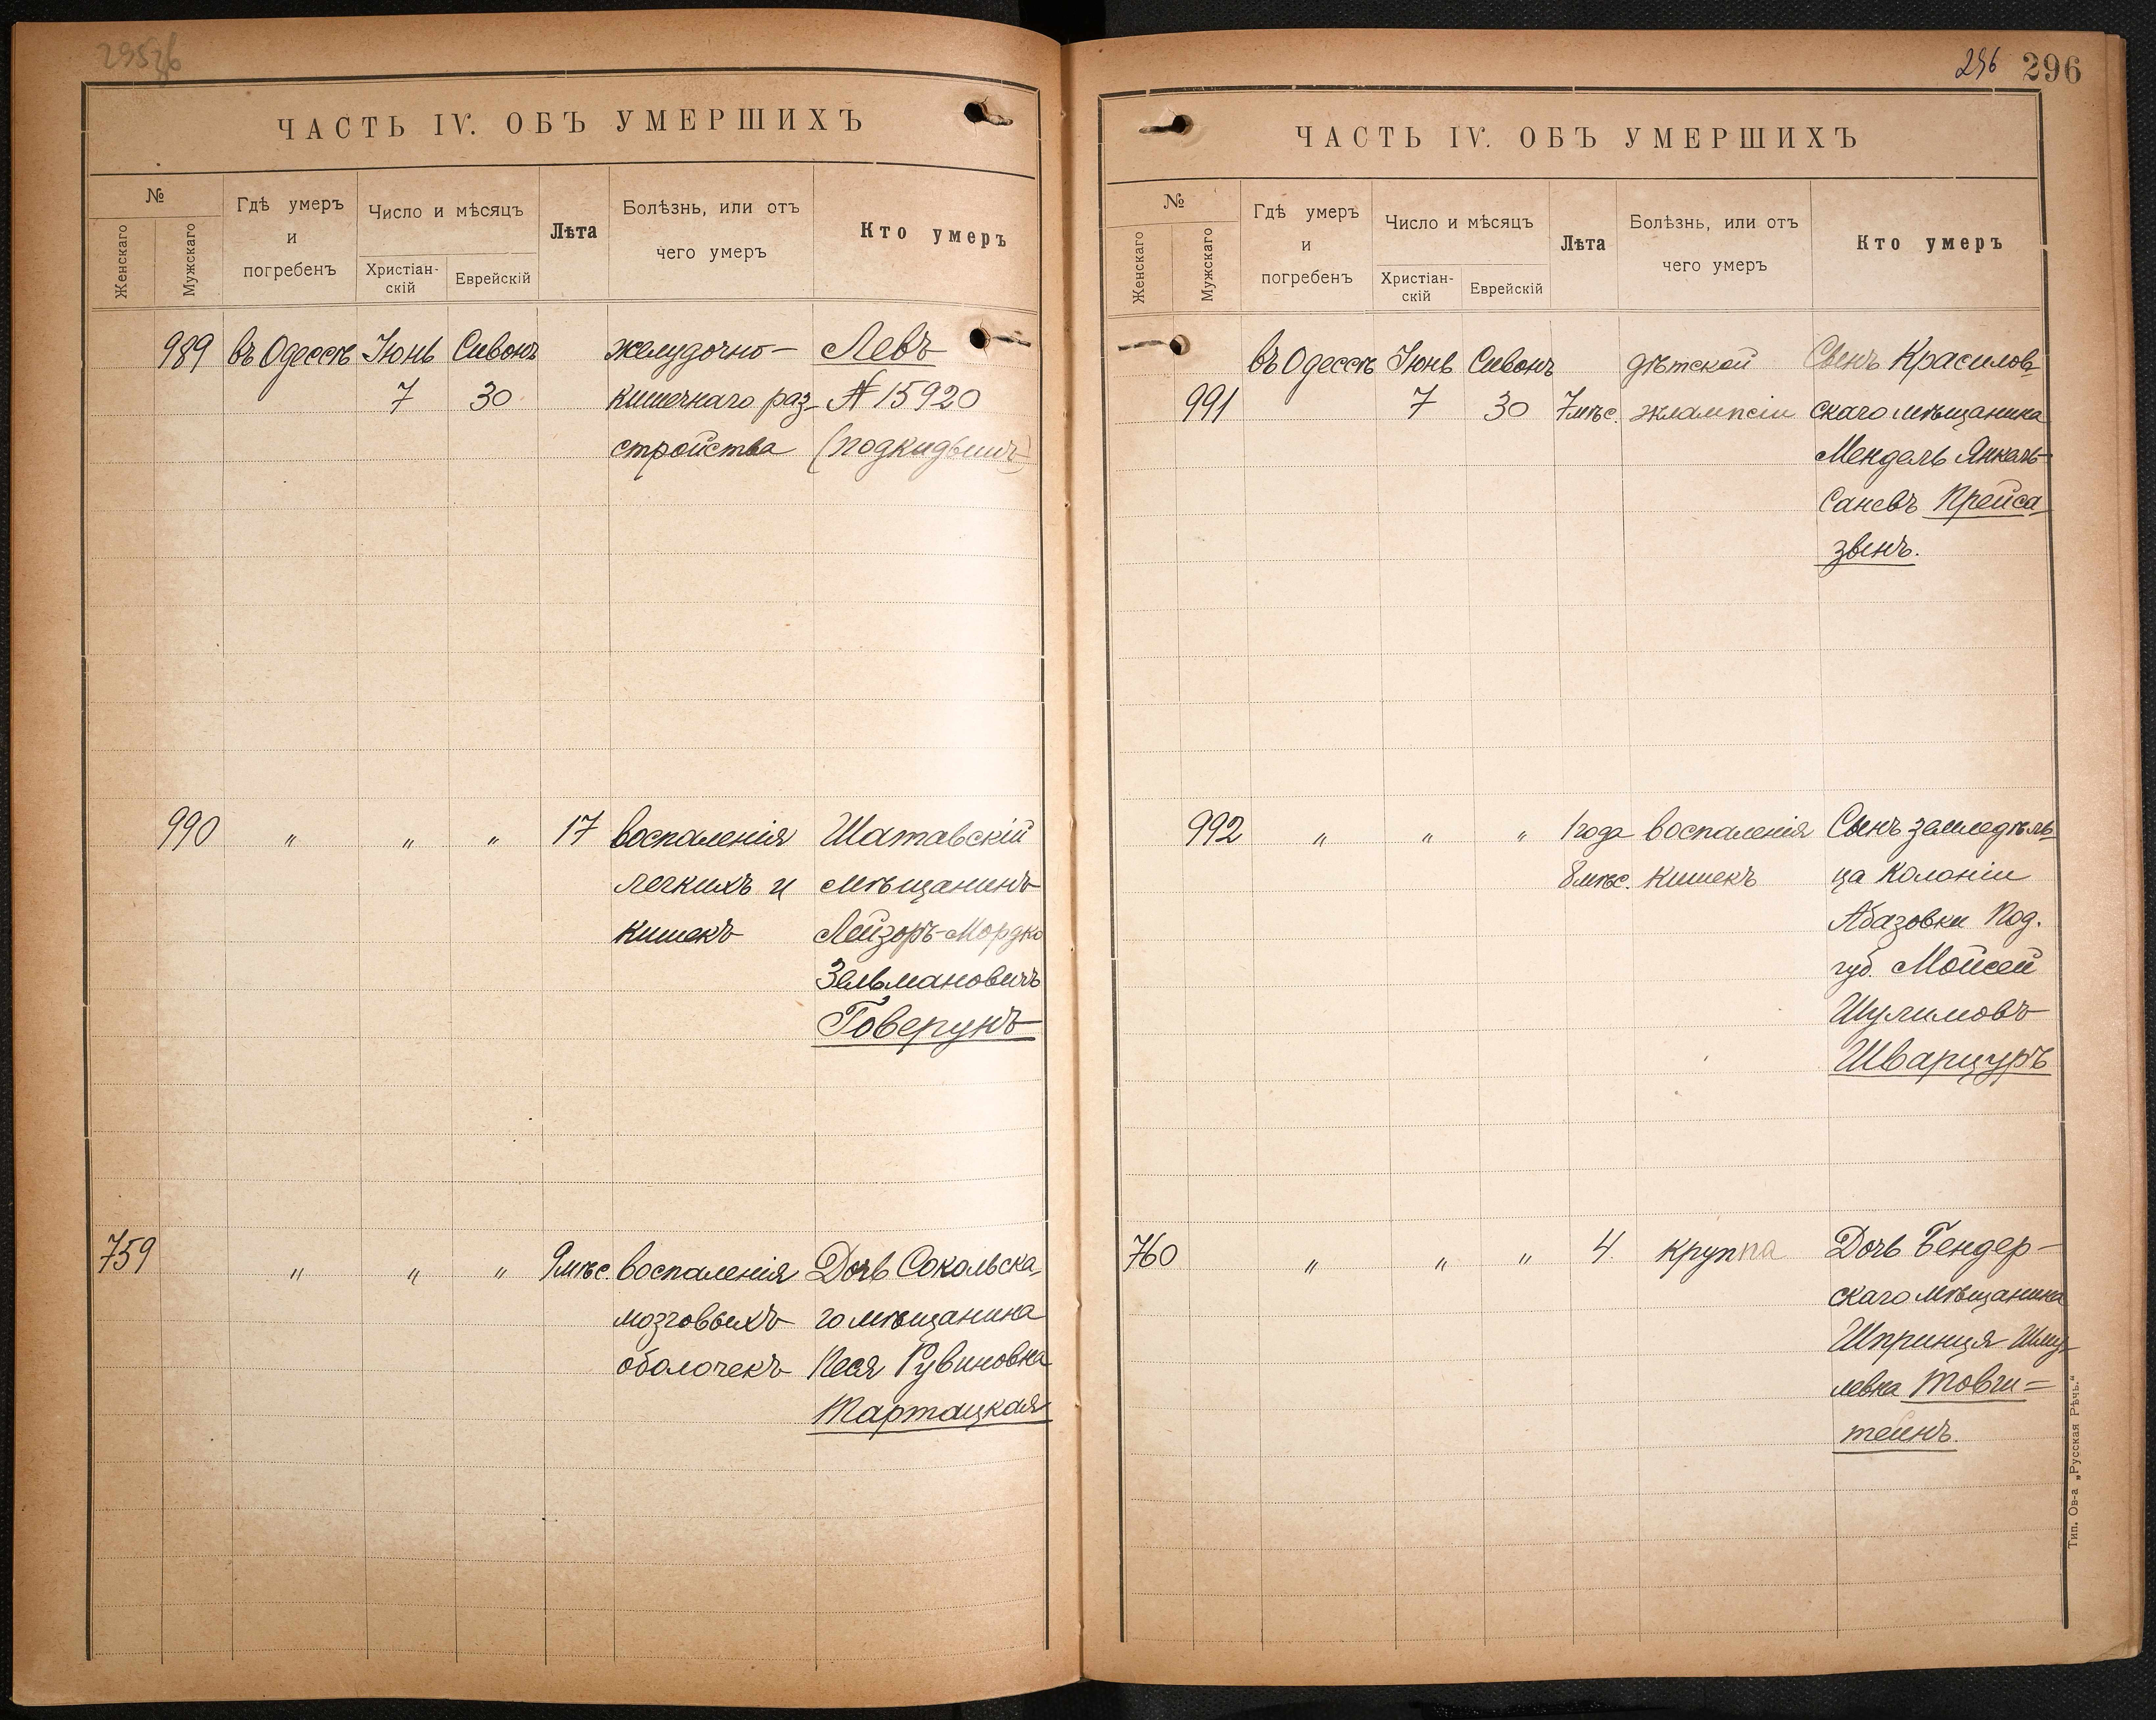 ЧАСТЬ IV. ОБЪ УМЕРШИХЪ
№
Женскаго
Мужскаго
Гдѣ умеръ
и
погребенъ
Число и мѣсяцъ
Христіан-
скій
Еврейскій
Лѣта
Болѣзнь, или отъ
чего умеръ
Кто умеръ
989 въ Одессѣ Іюнь Сивонъ желудочно- Левъ
7 30 кишечнаго раз- № 15920
стройства (подкидышъ)
990 " " " 17 воспаленія Шатавскій
легкихъ и мѣщанинъ
кишекъ Лейзоръ-Мордко
Зельмановичъ
Говерунъ
759 " " " 9 мѣс. воспаленія Дочь Сокольска-
мозговыхъ го мѣщанина
оболочекъ Песя Рувиновна
Тартацкая
296 296
ЧАСТЬ IV. ОБЪ УМЕРШИХЪ
№
Женскаго
Мужскаго
Гдѣ умеръ
и
погребенъ
Число и мѣсяцъ
Христіан-
скій
Еврейскій
Лѣта
Болѣзнь, или отъ
чего умеръ
Кто умеръ
въ Одессѣ Іюнь Сивонъ дѣтской Сынъ Красилов-
991 7 30 7 мѣс. эклампсіи скаго мѣщанина
Мендель Янкель-
Саневъ Крейса
звенъ.
992 " " " 1 года воспаленія Сынъ земледѣль-
8 мѣс. кишекъ ца колоніи
Абазовки Под.
губ. Мойсей
Шулимовъ
Шварцуръ
760 " " " 4. круппа Дочь Бендер-
скаго мѣщанина
Шпринця Шму-
левна Товши=
тейнъ.
Тип. Ов-а „Русская Рѣчь."